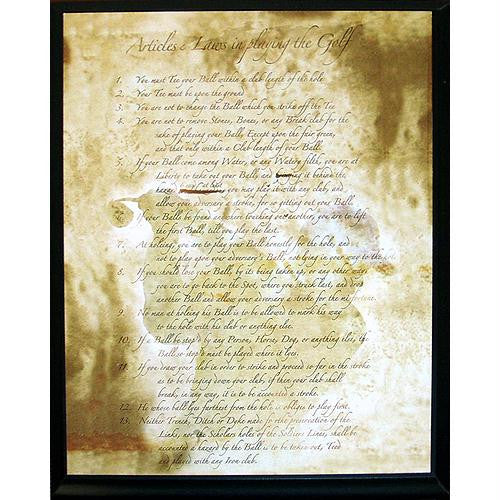 Articles & Laws in playing the Golf
1. You must Tee your Ball within a club length of the hole
2. Your Tee must be upon the ground
3. You are not to change the Ball which you strike off the Tee
4. You are not to remove Stones, Bones, or any Break club for the
sake of playing your Ball, Except upon the fair green,
and that only within a Club length of your Ball.
5. If your Ball come among Water, or any Watery filth, you are at
Liberty to take out your Ball, and it behind the
you may play it with any club, and
allow your adversary a stroke, for so getting out your Ball.
6. If your Balls be found anywhere touching one another, you are to lift
the first Ball, till you play the last.
7. At holeing, you are to play your Ball honestly for the hole, and
not to play upon your adversary's Ball, not lying in your way to the hole.
8. If you should lose your Ball, by its being taken up, or any other way
you are to go back to the Spot, where you struck last, and drop
another Ball and allow your adversary a stroke for the misfortune.
9. No man at holeing his Ball is to be allowed to mark his way
to the hole with his club or anything else.
10. If a Ball be stop'd by any Person, Horse, Dog, or anything else, the
Ball so stop'd must be played where it lyes.
11. If you draw your club in order to strike and proceed so far in the stroke
as to be bringing down your club, if then your club shall
break, in any way, it is to be accounted a stroke.
12. He whose ball lyes farthest from the hole is obliged to play first.
13. Neither Trench, Ditch or Dyke made for the preservation of the
Links, nor the Scholars holes or the Soldiers Lines, shall be
accounted a hazard by the Ball is to be taken out, Teed
and played with any Iron club.